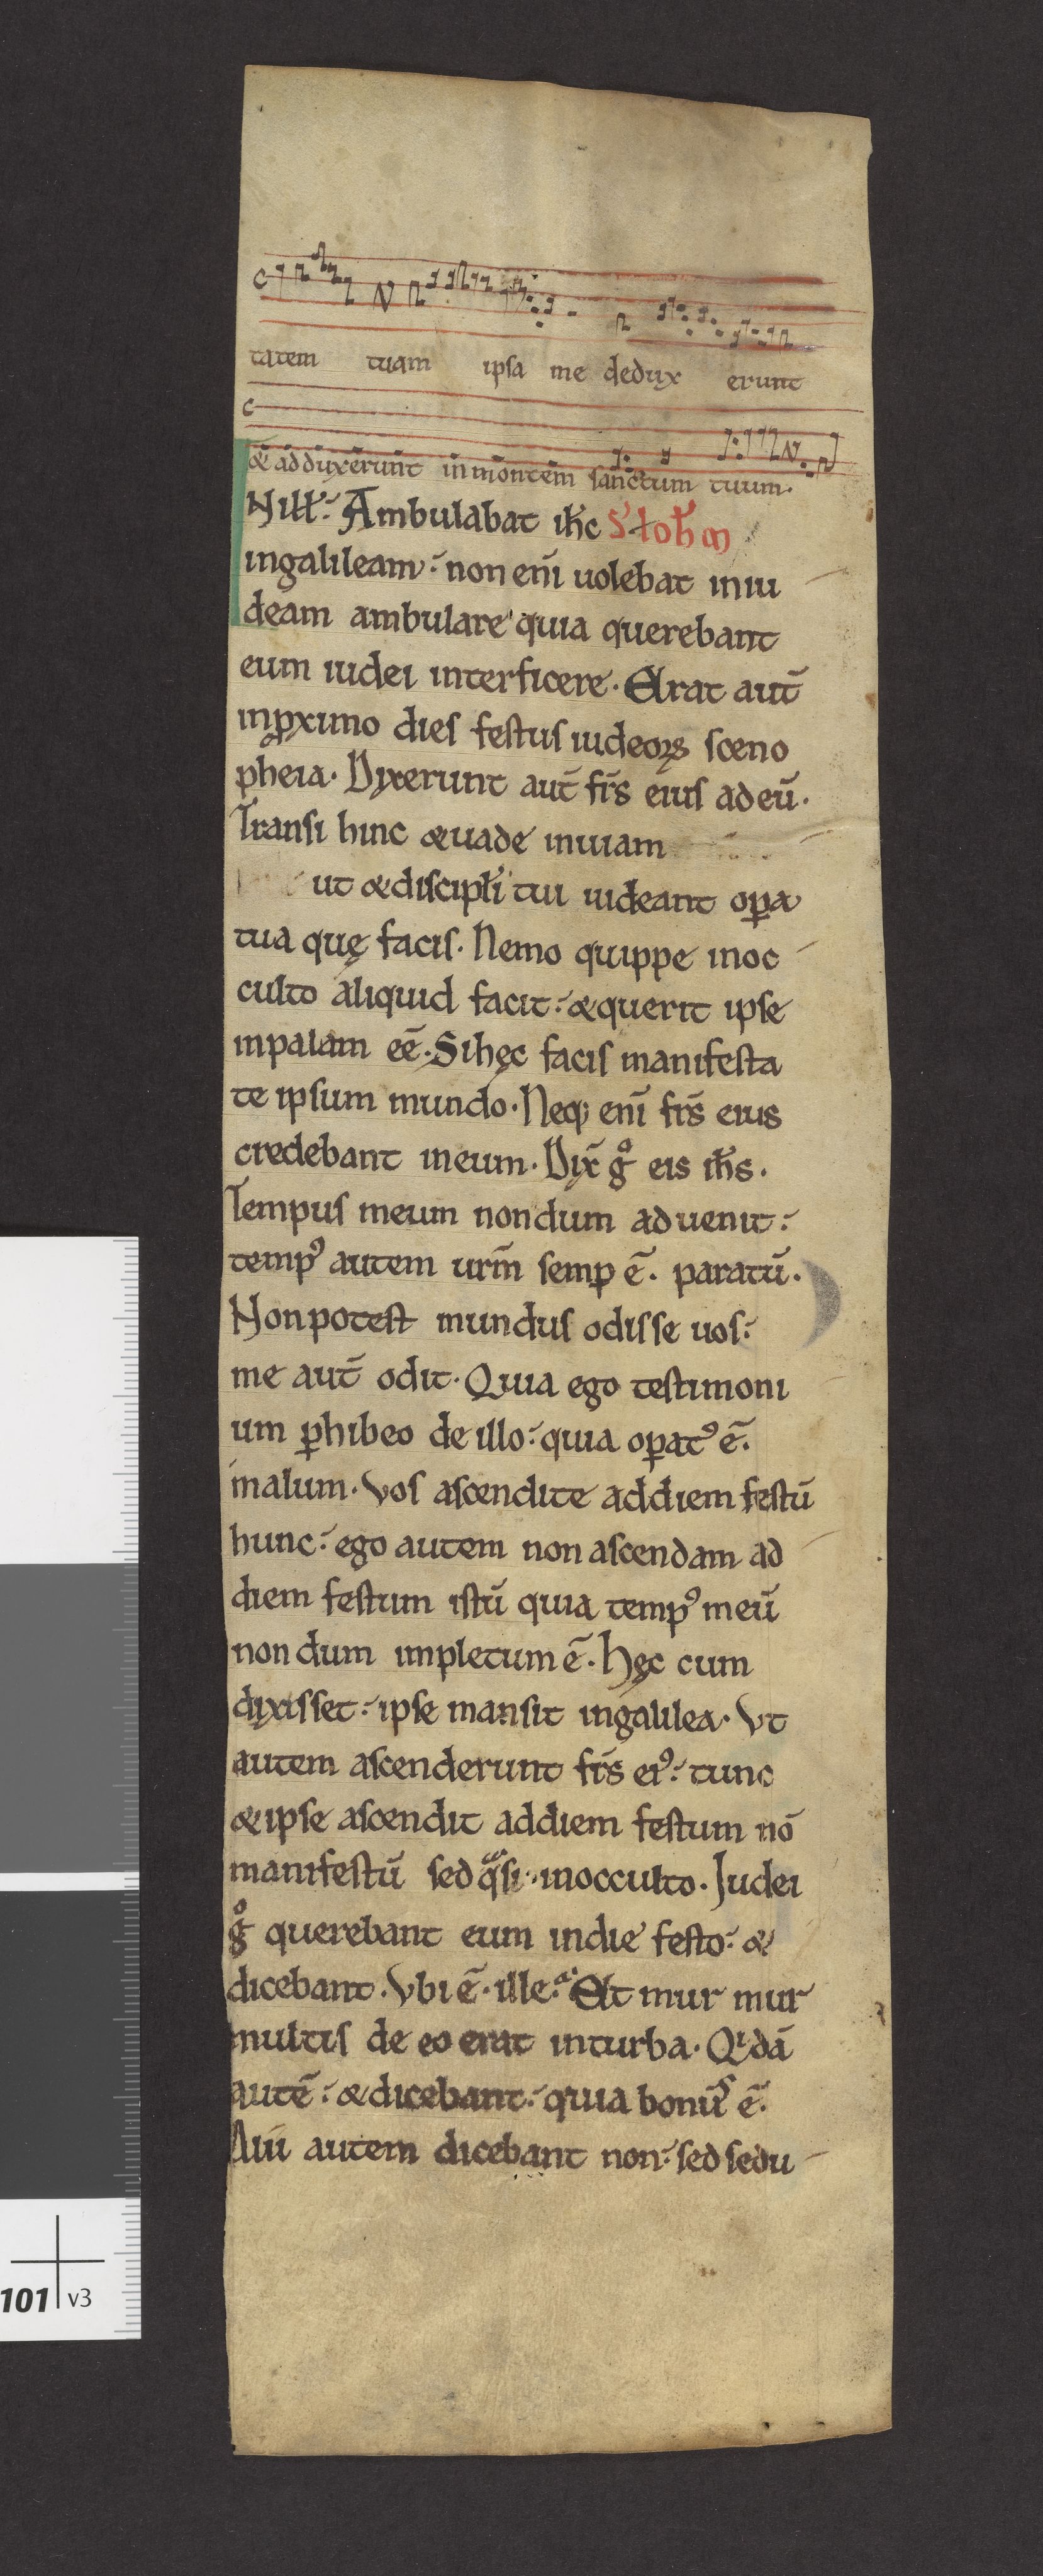 tatem tuam ipsa me dedux erunt
& adduxerunt in montem sanctum tuum.
N ill̄. Ambulabat ih̄c S. Ioh̄m
ingalileam. non eni̅ uolebat iniu
deam ambulare quia querebant
eum iudei interficere. Erat aut̅
inꝓximo dies festus iudeoꝝ sceno
pheia. Dixerunt aut̅ fr̅s eius ad eu̅.
Transi hinc & uade inuiam
ut & discipl̅i tui uideant oꝑa
tua quę facis. Nemo quippe inoc
culto aliquid facit. & querit ipse
inpalam ee̅. Si hęc facis manifesta
te ipsum mundo. Neq; eni̅ fr̅s eius
credebant ineum. Dix̅ gͦ eis ih̅s.
Tempus meum nondum aduenit.
tempꝰ autem ur̅m semꝑ e̅. paratu̅.
Non potest mundus odisse uos.
me aut̅ odit. Quia ego testimoni
um ꝑhibeo de illo. quia oꝑatꝰ e̅.
malum. Vos ascendite addiem festu̅
hunc. ego autem non ascendam ad
diem festum istu̅ quia tempꝰ meu̅
non dum impletum e̅. hęc cum
dixisset. ipse mansit ingalilea. Vt
autem ascenderunt fr̅s eiꝰ. tunc
& ipse ascendit addiem festum no̅
manifestu̅ sed qͣsi inocculto. Judei
gͦ querebant eum indie festo. &
dicebant. Vbi e̅. ille. Et mur mur
multis de eo erat inturba. Qͥda̅
aute̅. & dicebant. quia bonus e̅.
Alii autem dicebant non. sed sedu